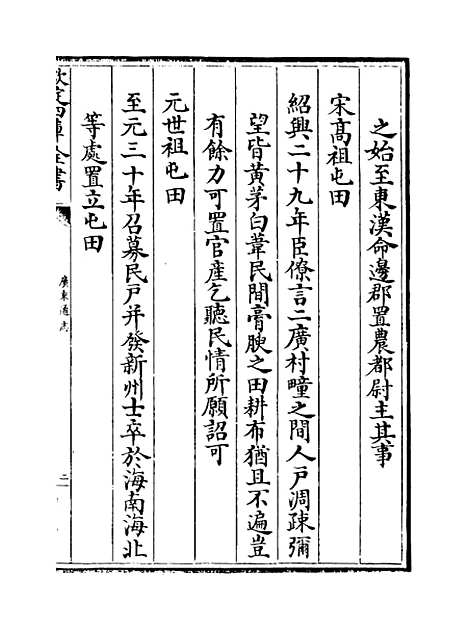 之始至東漢命邊郡置農都尉主其事
宋髙祖屯田
紹興二十九年臣僚言二廣村疃之間人戸凋疎彌
望皆黄茅白葦民間膏腴之田耕布猶且不遍豈
有餘力可置官産乞聽民情所願詔可
元世祖屯田
至元三十年召募民戸并發新州士卒於海南海北
等處置立屯田
欽定四庫全書
廣東通志
二